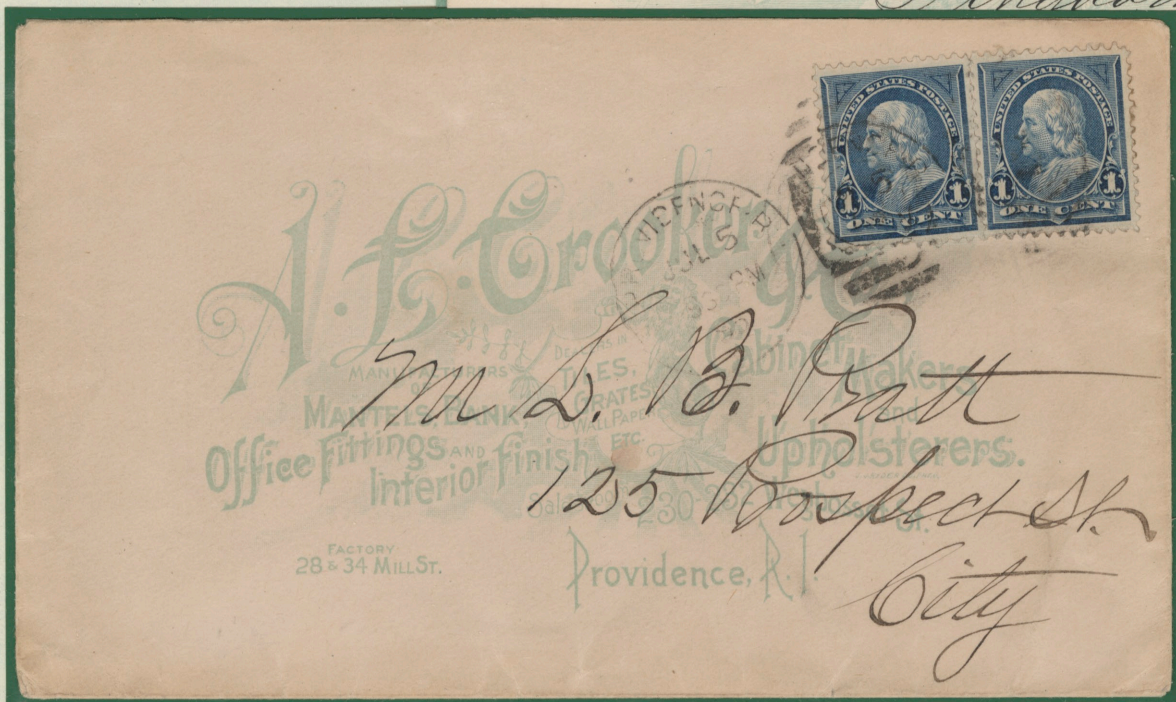 UNITED STATES POSTAGE
1 1
ONE CENT
UNITED STATES POSTAGE
1 1
ONE CENT
VIDENCE. R
JUL 5
PM
A. L. Crooker
MANUFACTURERS
OF
MANTELS, BANK,
Office Fittings AND
Interior Finish
DEALERS IN
TILES,
GRATES
WALL PAPER
ETC.
Cabinet
Makers
and
Upholsterers.
230-232 Weybosset St.
FACTORY
28 & 34 MILL ST.
Providence, R.I.
Mr L. B. Pratt
125 Prospect St.
City